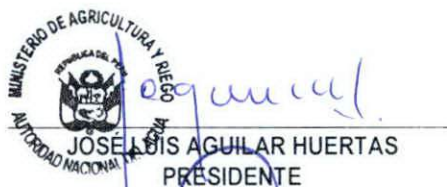 MINISTERIO DE AGRICULTURA Y RIEGO
REPUBLICA DEL PERU
AUTORIDAD NACIONAL DEL AGUA
JOSÉ LUIS AGUILAR HUERTAS
PRESIDENTE